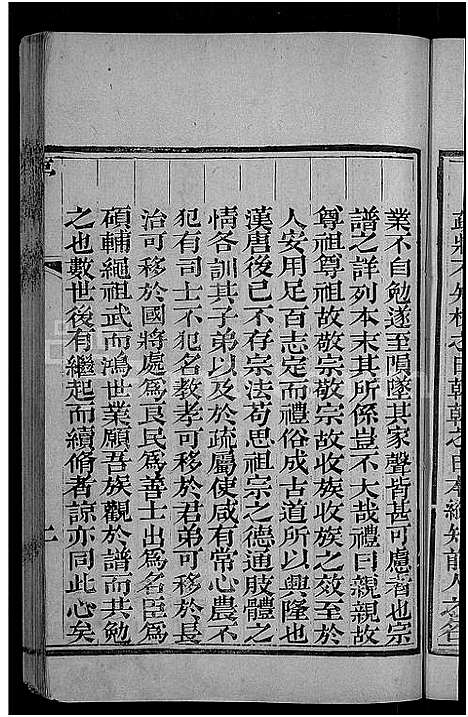 業不自勉遂至隕墜其家聲背甚可慮者也宗
譜之詳列本末其所係豈不大哉禮曰親親故
尊祖尊祖故敬宗敬宗故收族收族之效至於
人安用足百志定而禮俗成古道所以興隆也
漢唐後已不存宗法苟思祖宗之德通肢體之
情各訓其子弟以及於疏屬使咸有常心農不
犯有司士不犯名教孝可移於君弟可移於長
治可移於國將處為良民為善士出為名臣為
碩輔繩祖武而鴻世業願吾族觀於譜而共勉
之也數世後有繼起而續脩者諒亦同此心矣
二